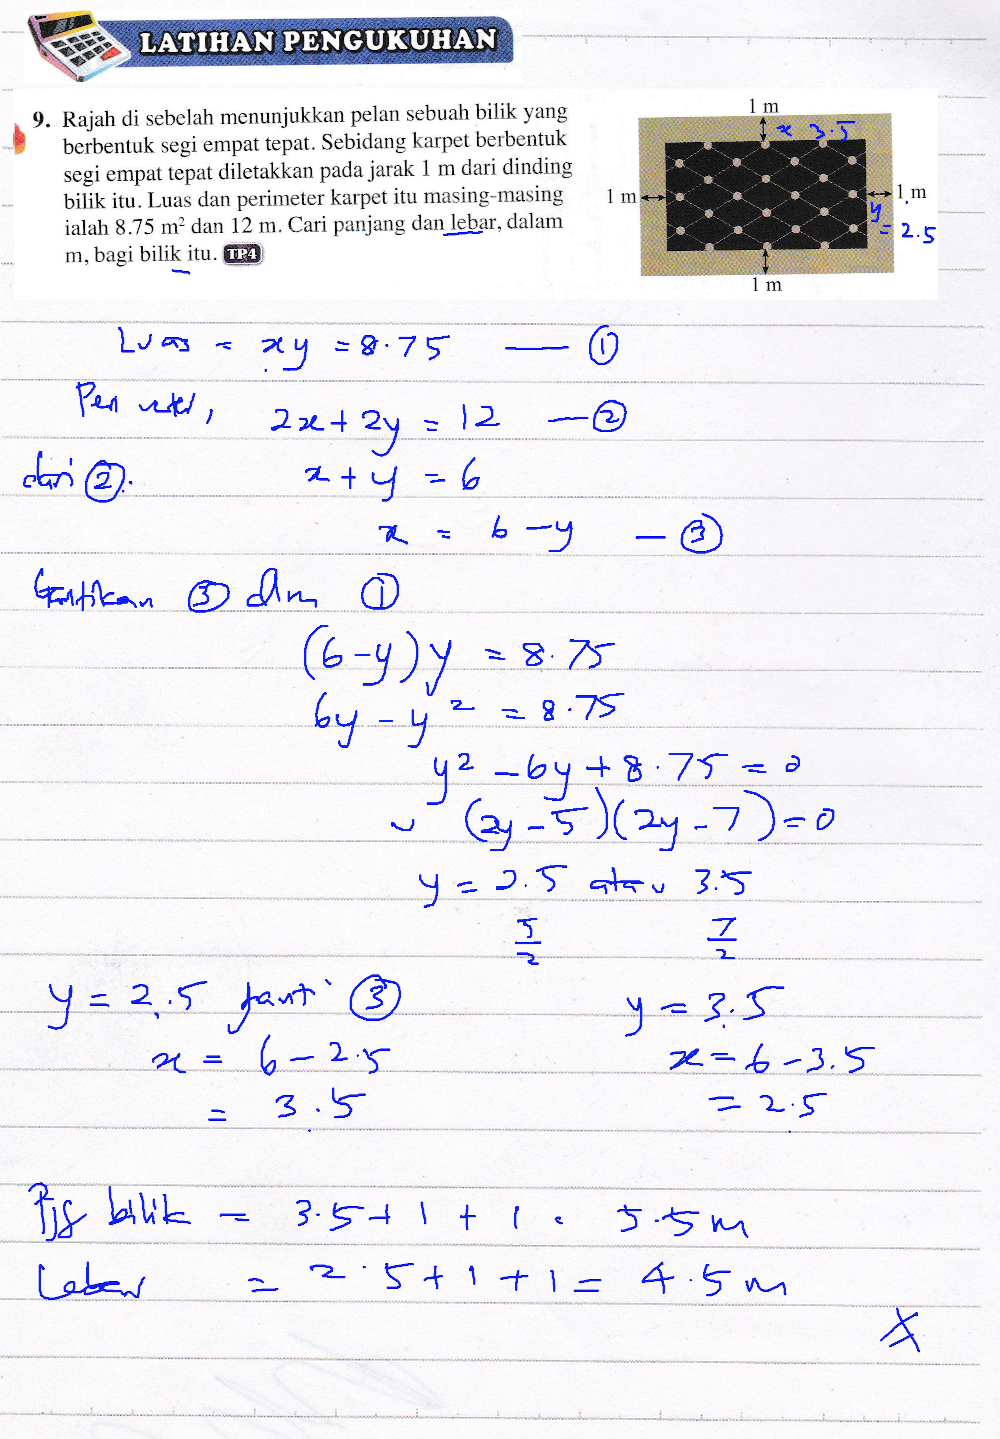 LATIHAN PENGUKUHAN
9. Rajah di sebelah menunjukkan pelan sebuah bilik yang
berbentuk segi empat tepat. Sebidang karpet berbentuk
segi empat tepat diletakkan pada jarak 1 m dari dinding
bilik itu. Luas dan perimeter karpet itu masing-masing
ialah 8.75 m² dan 12 m. Cari panjang dan lebar, dalam
m, bagi bilik itu. TP4
1 m
x 3.5
1 m
1 m
y
= 2.5
1 m
Luas = xy = 8.75 — ①
2x + 2y = 12 — ②
dari ②. x + y = 6
x = 6 - y — ③
Gantikan ③ dlm ①
(6-y)y = 8.75
6y - y² = 8.75
y² - 6y + 8.75 = 0
(2y - 5)(2y - 7) = 0
y = 2.5 atau 3.5
5/2 7/2
y = 2.5 ganti ③ y = 3.5
x = 6 - 2.5 x = 6 - 3.5
= 3.5 = 2.5
Pjg bilik = 3.5 + 1 + 1 = 5.5 m
Lebar = 2.5 + 1 + 1 = 4.5 m